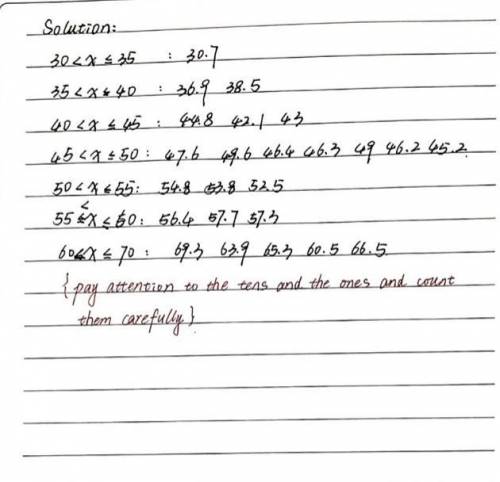 Solution:
30 < x ≤ 35 : 30.7
35 < x ≤ 40 : 36.9 38.5
40 < x ≤ 45 : 44.8 42.1 43
45 < x ≤ 50 : 47.6 49.6 46.4 46.3 49 46.2 45.2
50 < x ≤ 55 : 54.8 53.8 52.5
55 < x ≤ 60 : 56.4 57.7 57.3
60 < x ≤ 70 : 69.3 63.9 65.3 60.5 66.5
{pay attention to the tens and the ones and count
them carefully}